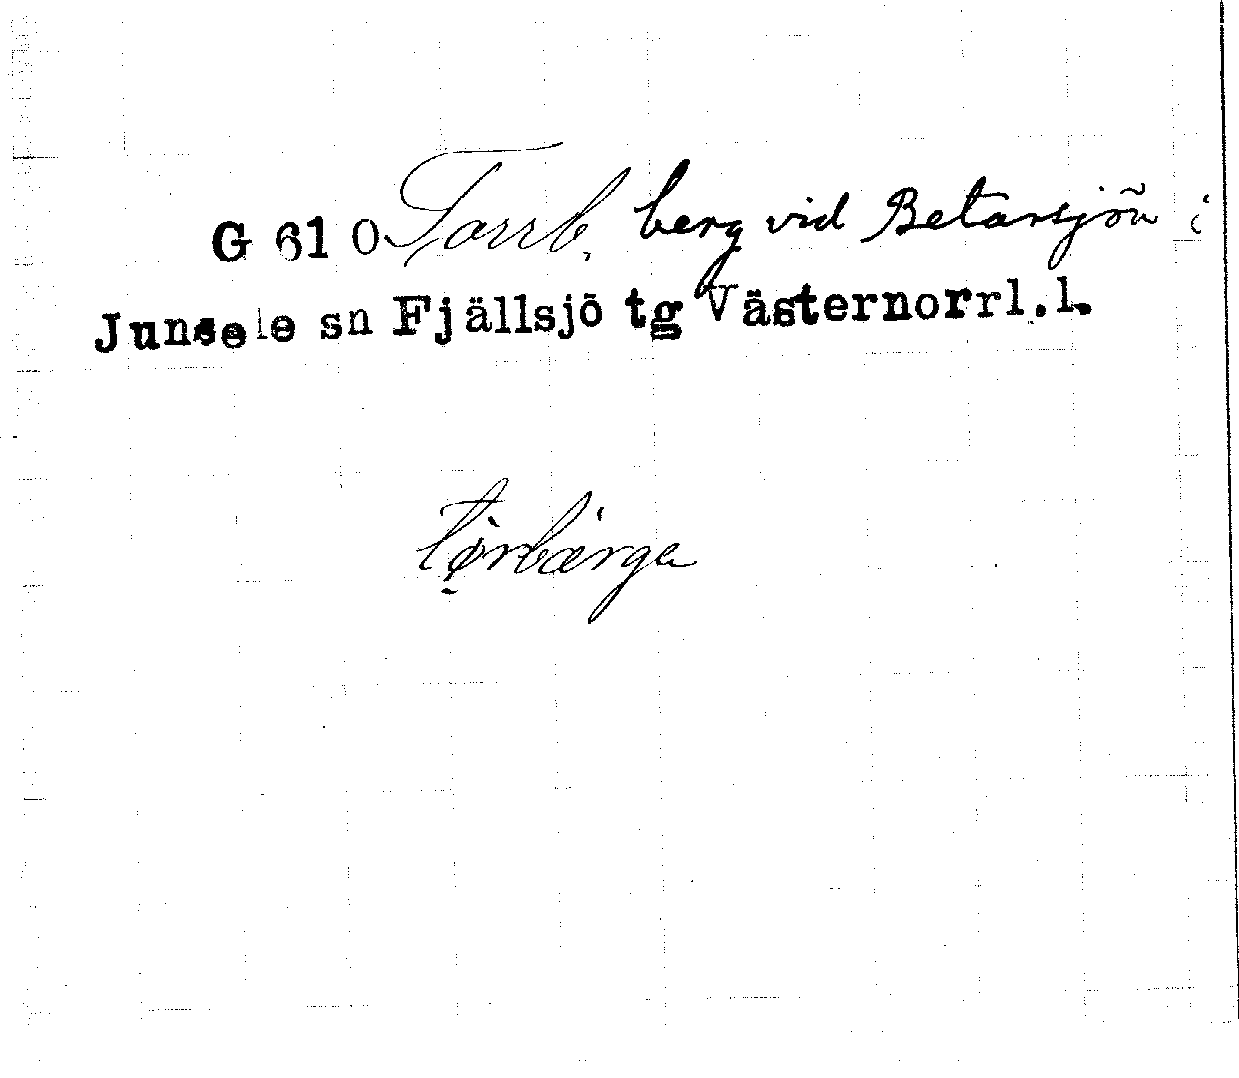 G 610 Torrb, berg vid Betarsjön i
Junsele sn Fjällsjö tg Västernorrl.l.
tø̀rbærga